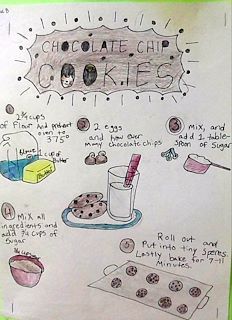 CHOCOLATE CHIP
COOKIES
2 ¼ cups
of flour And preheat
oven to
375°
1 cup of
butter
2
2 eggs
and how ever
many chocolate chips
3
Mix, and
add 1 table-
spoon of Sugar
4
Mix all
ingredients and
add ¾ cups of
Sugar
5
Roll out and
Put into tiny Speres.
Lastly bake for 7-11
Minutes.